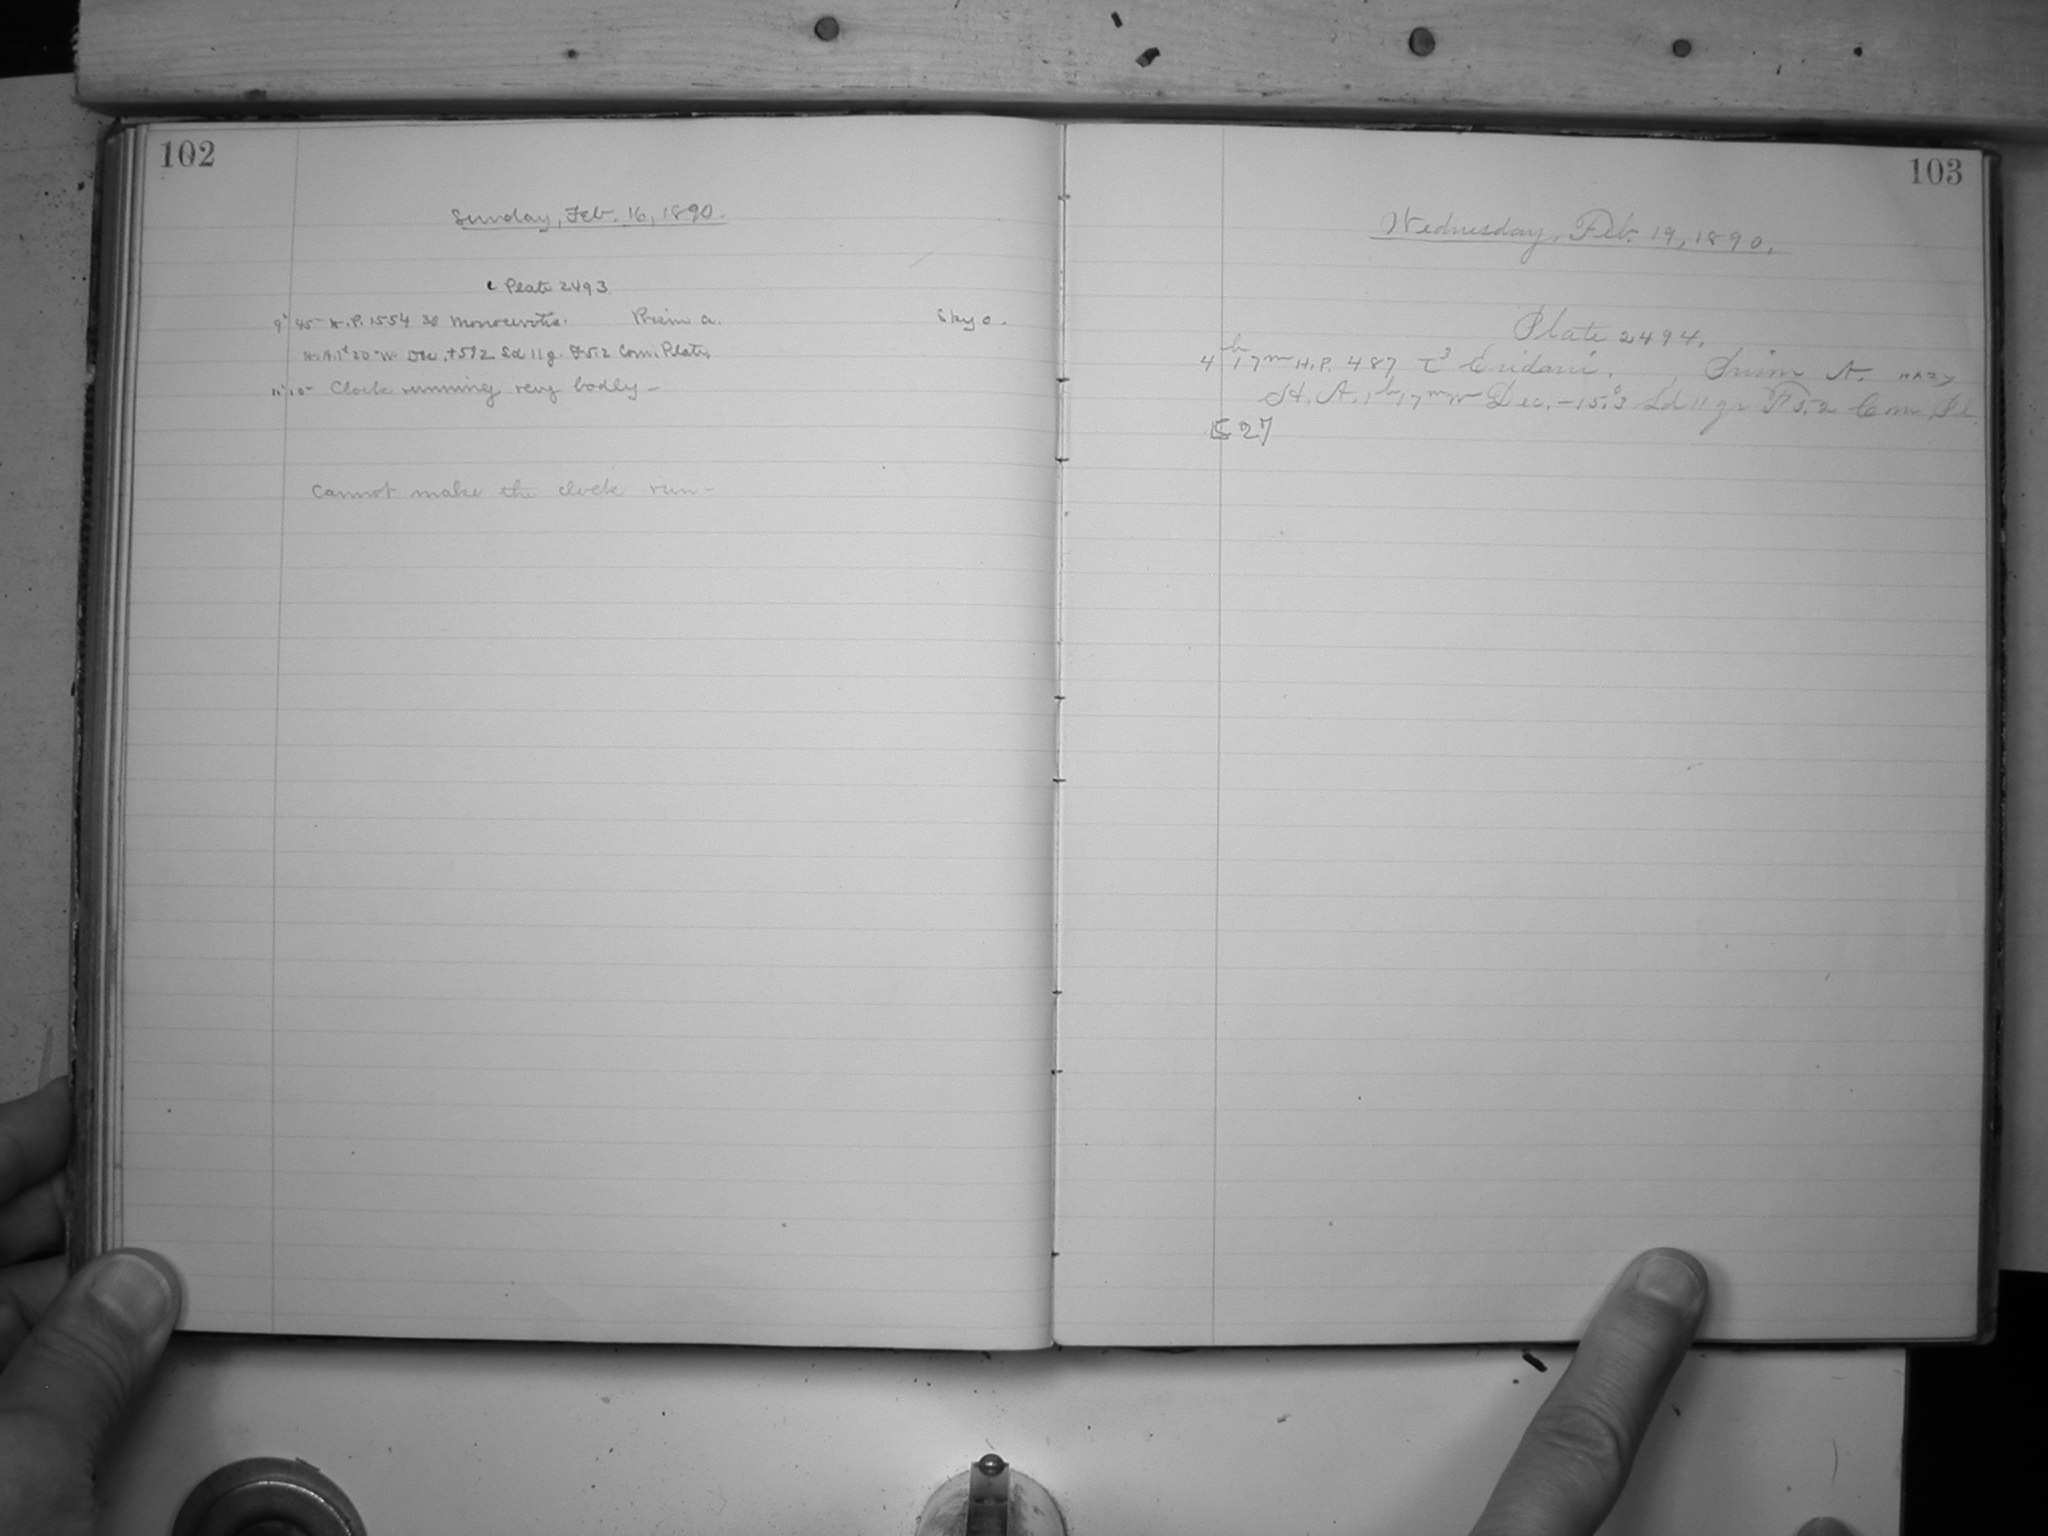 102
Sunday, Feb. 16, 1890.
c Plate 2493
9h 45m H.P. 1554 30 Monocerotis. Prism a. Sky 0.
H.A. 1h 20m W. Dec. +5°.2 Sd 11 g. F 5.2 Com. Plate
11h 10m Clock running very badly –
Cannot make the clock run –
103
Wednesday, Feb. 19, 1890.
Plate 2494.
4h 17m H.P. 487 τ3 Eridani. Prism A. HAZY
H. A. 1h 17m W Dec. –15°.3 Sd 11 gr F 5.2 Com Pl.
5 27